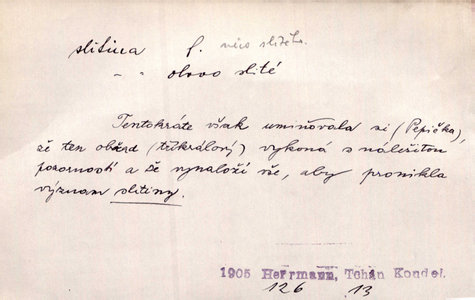 slitina f. něco slitého.
" " olovo slité
Tentokráte však umiňovala si (Pepička,
že ten obřad (tříkrálový) vykoná s náležitou
pozorností a že vynaloží vše, aby pronikla
význam slitiny.
1905 Herrmann, Tchán Kondel.
126 13